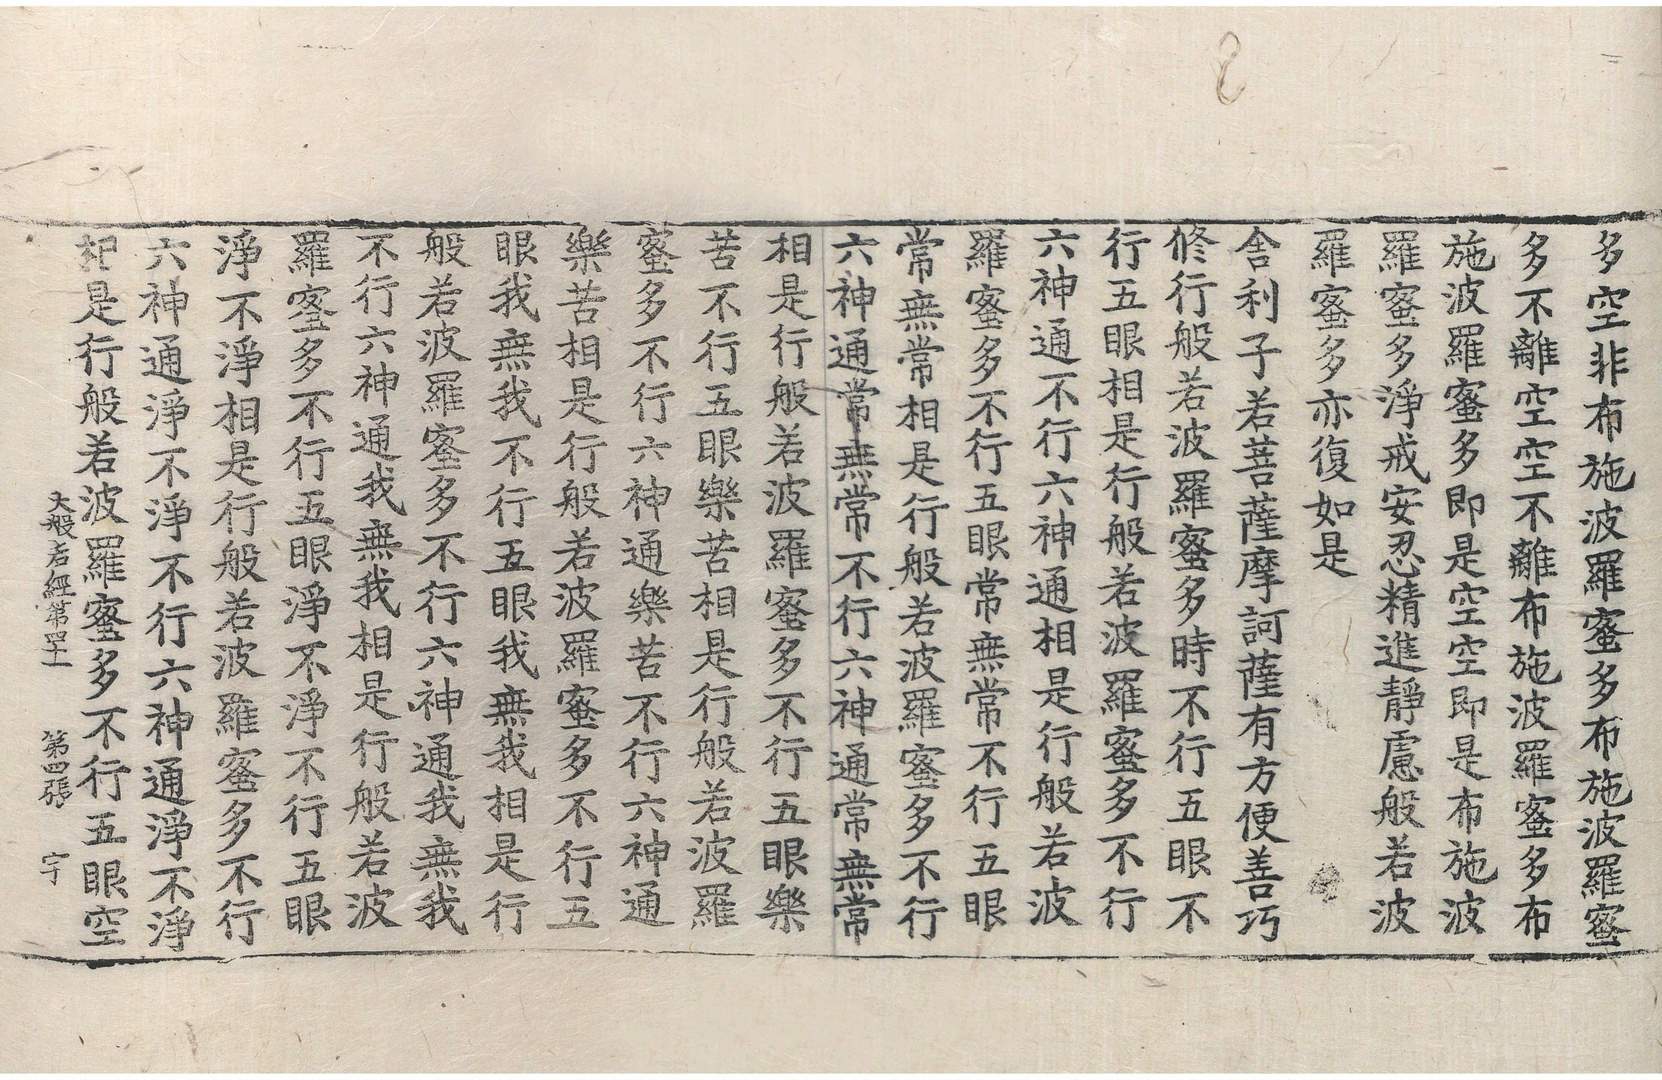 多空非布施波羅蜜多布施波羅蜜
多不離空空不離布施波羅蜜多布
施波羅蜜多即是空空即是布施波
羅蜜多淨戒安忍精進靜慮般若波
羅蜜多亦復如是
舍利子若菩薩摩訶薩有方便善巧
修行般若波羅蜜多時不行五眼不
行五眼相是行般若波羅蜜多不行
六神通不行六神通相是行般若波
羅蜜多不行五眼常無常不行五眼
常無常相是行般若波羅蜜多不行
六神通常無常不行六神通常無常
相是行般若波羅蜜多不行五眼樂
苦不行五眼樂苦相是行般若波羅
蜜多不行六神通樂苦不行六神通
樂苦相是行般若波羅蜜多不行五
眼我無我不行五眼我無我相是行
般若波羅蜜多不行六神通我無我
不行六神通我無我相是行般若波
羅蜜多不行五眼淨不淨不行五眼
淨不淨相是行般若波羅蜜多不行
六神通淨不淨不行六神通淨不淨
相是行般若波羅蜜多不行五眼空
大般若經第四十一 第四張 宇